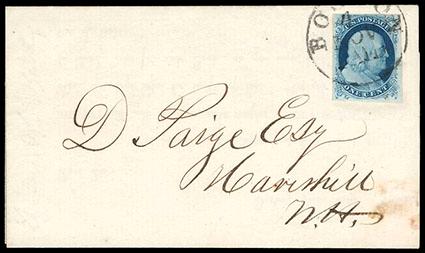 BOSTON
U.S. POSTAGE
ONE CENT
D Paige Esq
Haverhill
N.H.